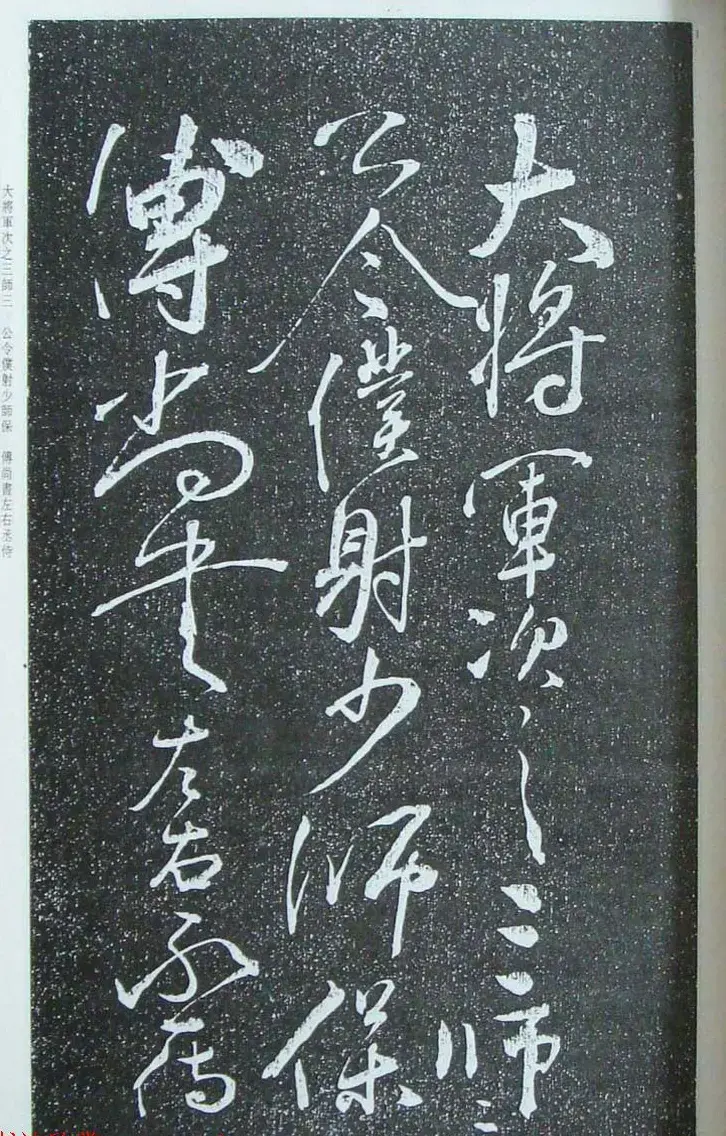 大將軍次之三師三
公令僕射少師保
傅尚書左右丞侍
大將軍次之三師三 公令僕射少師保 傅尚書左右丞侍